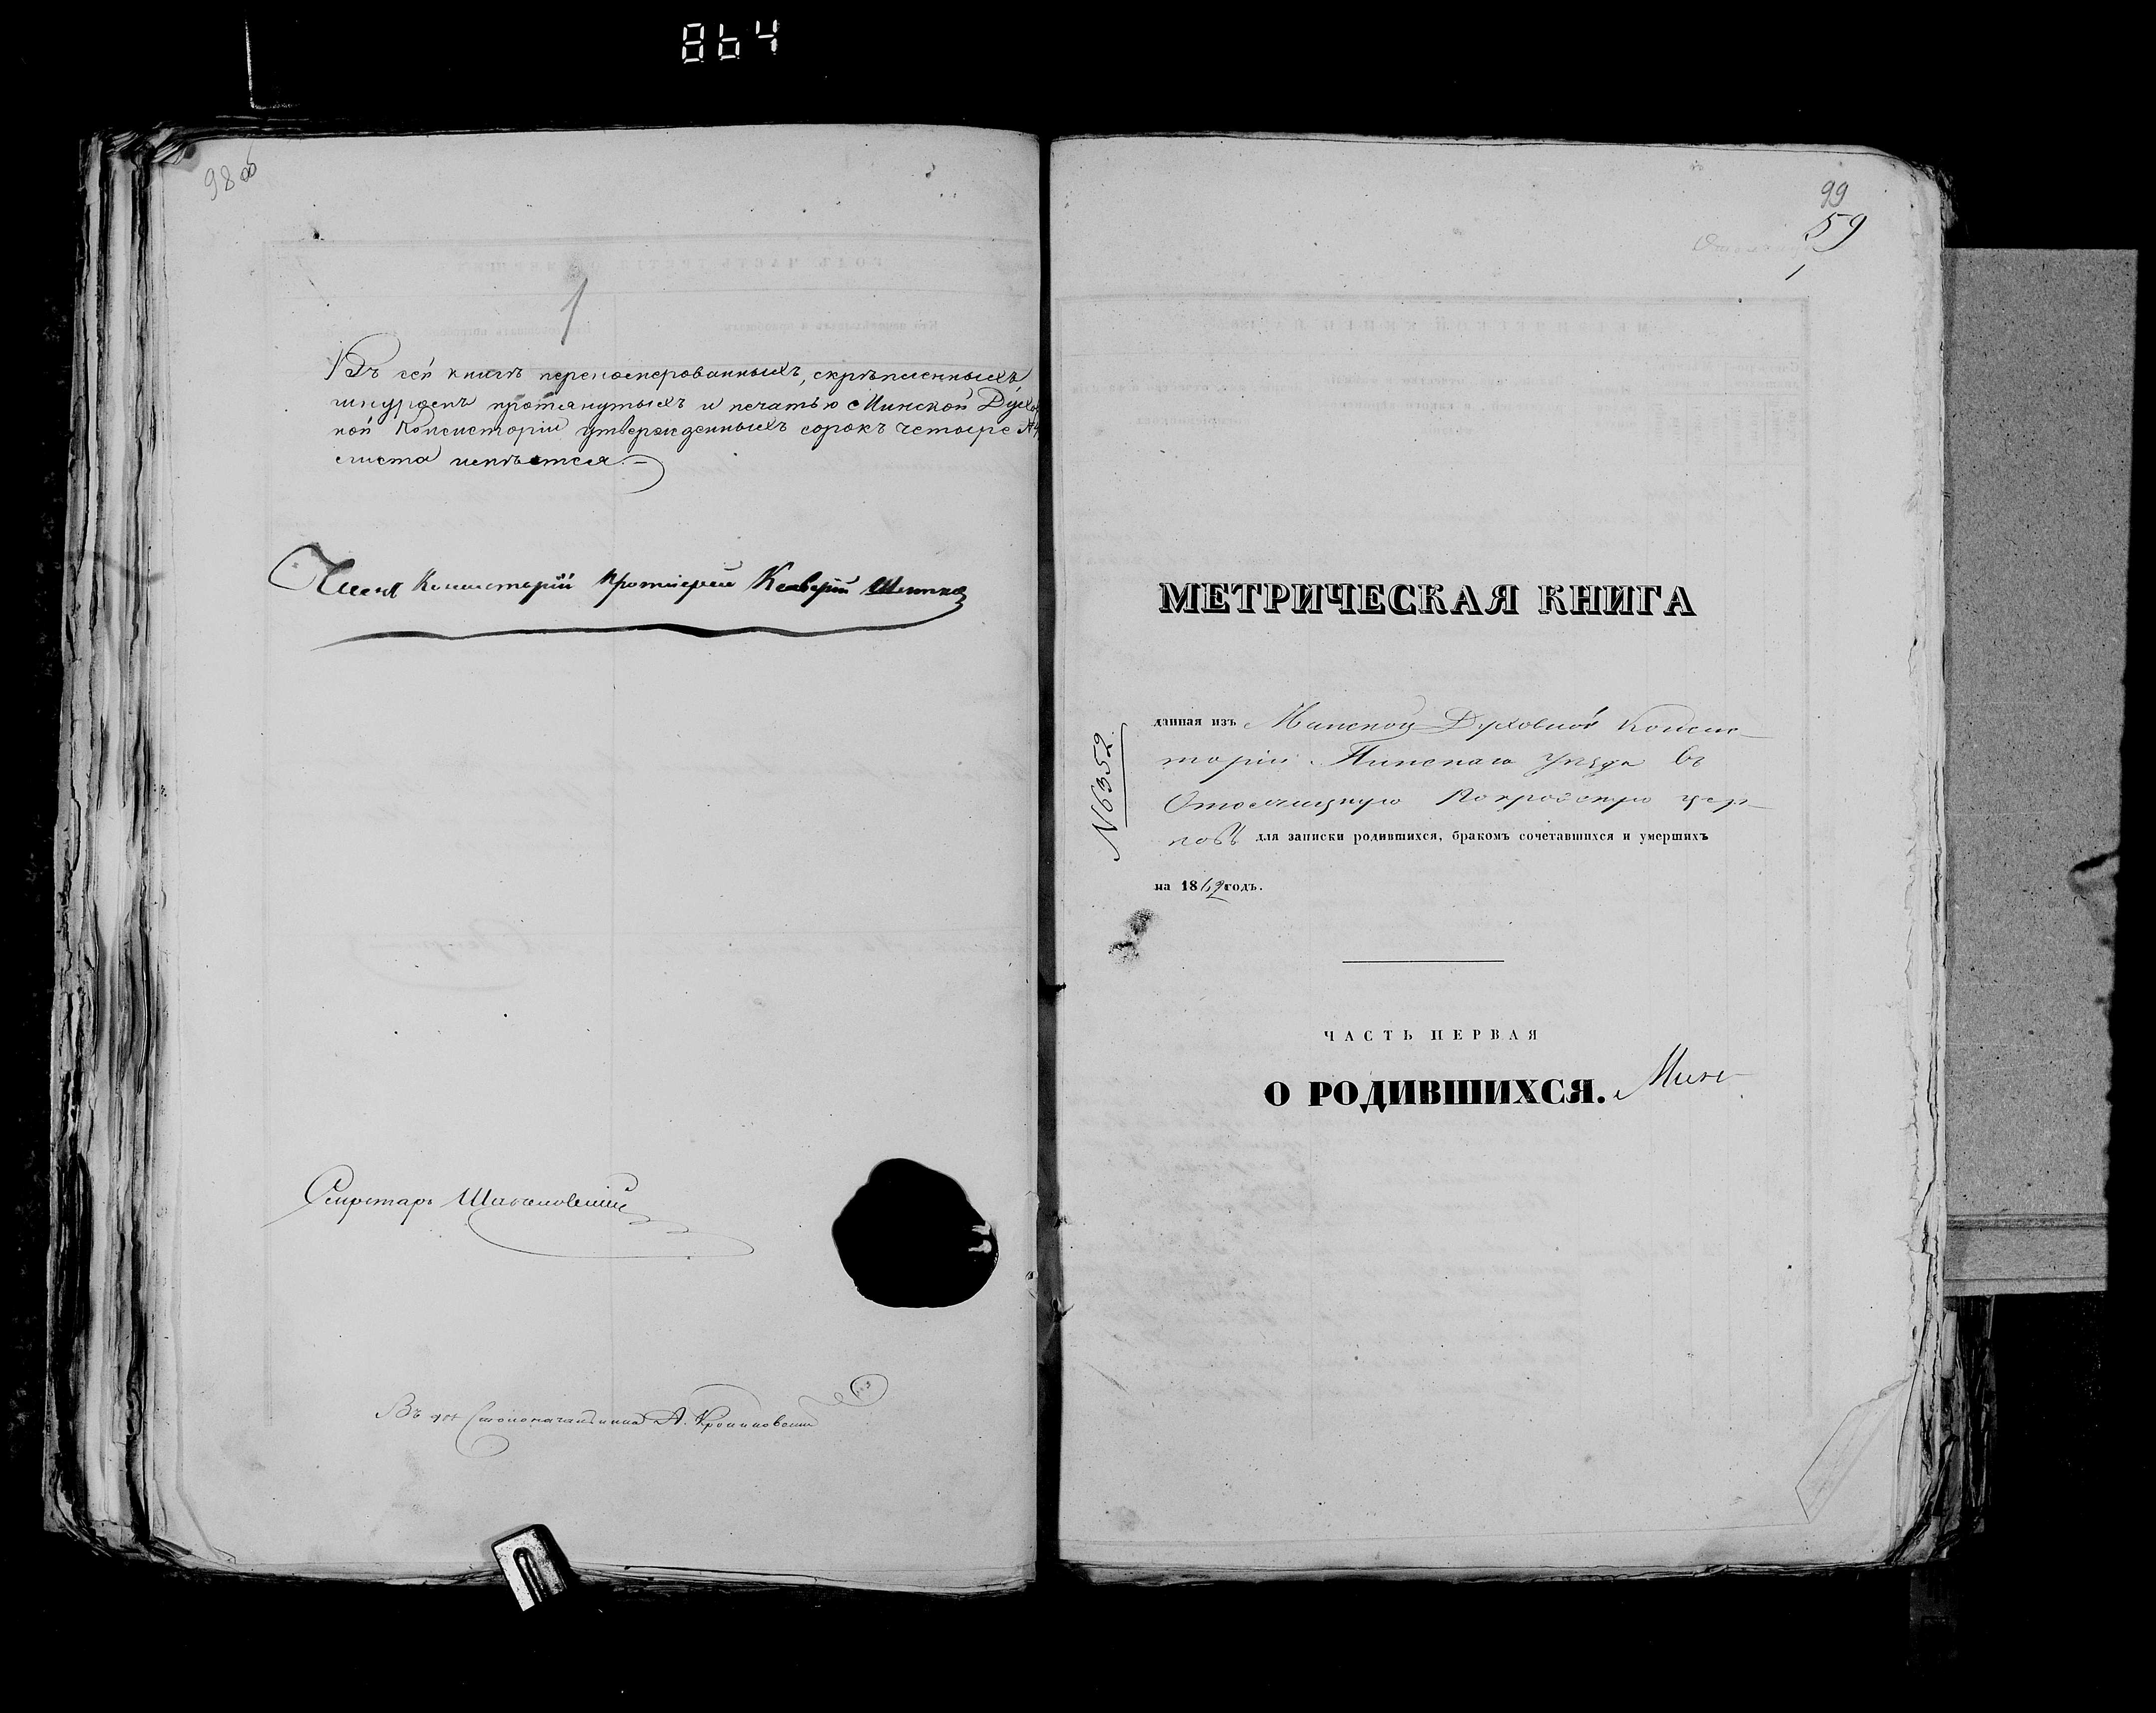 864
98 об
1
Въ сей книгѣ перенумерованныхъ, скрѣпленныхъ
шнуромъ протянутыхъ и печатью Минской Духов
ной Консисторіи утвержденныхъ сорокъ четыре
листа имѣется.
Членъ Консисторіи Протоіерей
Секретарь
Въ дол Столоначальника А.
99
59
1
МЕТРИЧЕСКАЯ КНИГА
данная изъ Минской Духовной Консис-
торіи Пинскаго уѣзда въ
Покровскую цер-
ковь для записки родившихся, бракомъ сочетавшихся и умершихъ
на 1862 годъ.
N6352
ЧАСТЬ ПЕРВАЯ
О РОДИВШИХСЯ.